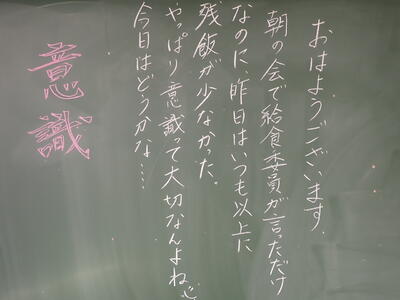 おはようございます。
朝の会で給食委員が言っただけ
なのに、昨日はいつも以上に
残飯が少なかった。
やっぱり意識って大切なんよね
今日はどうかな…
意識